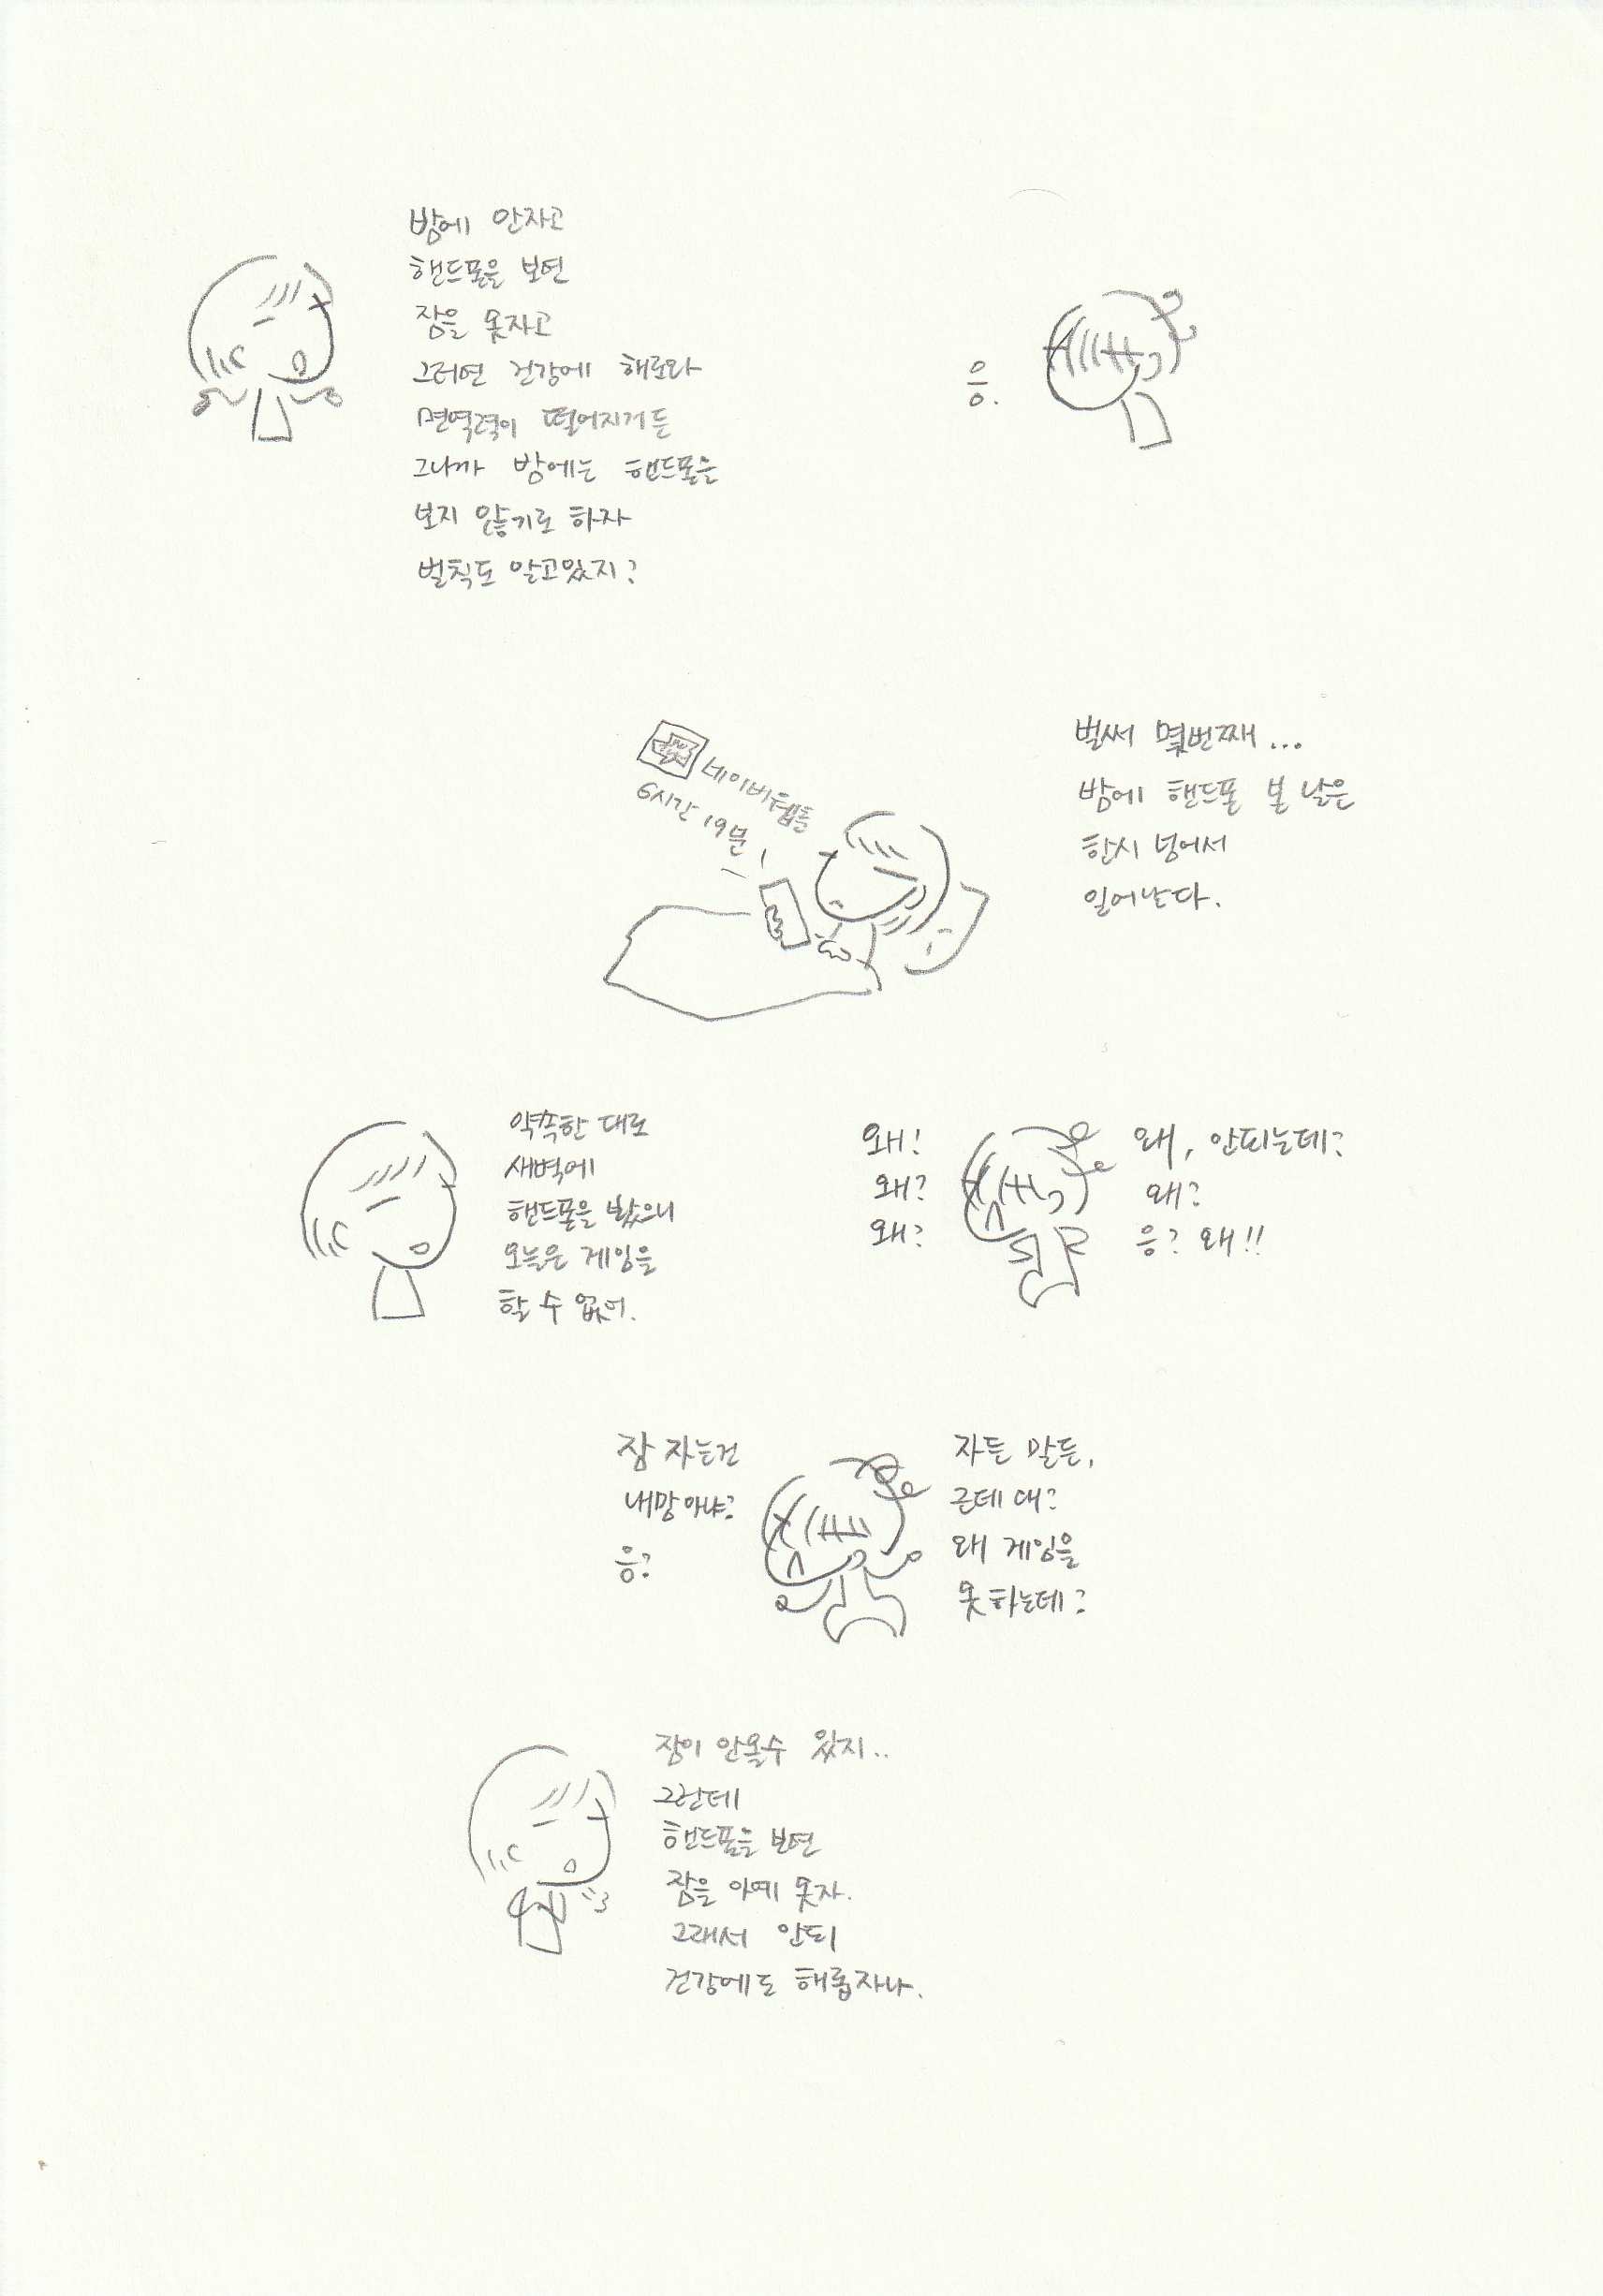 밤에 안자고
핸드폰을 보면
잠을 못자고
그러면 건강에 해로와
면역력이 떨어지거든
그니까 밤에는 핸드폰을
보지 않기로 하자
벌칙도 알고있지?
응.
네이버웹툰
6시간 19분
벌써 몇번째...
밤에 핸드폰 본 날은
한시 넘어서
일어난다.
약속한 대로
새벽에
핸드폰을 봤으니
오늘은 게임을
할 수 없어.
왜!
왜?
왜?
왜, 안되는데?
왜?
응? 왜!!
잠 자는건
내맘 아냐?
응?
자든 말든,
근데 대?
왜 게임을
못하는데?
잠이 안올수 있지..
그런데
핸드폰을 보면
잠을 아예 못자.
그래서 안되
건강에도 해롭자나.